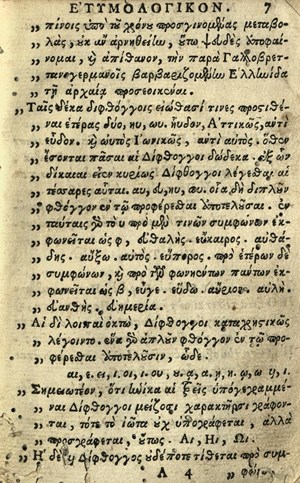 ΕΤΥΜΟΛΟΓΙΚΟΝ. 7
„ πίνοις ὑπὸ τοῦ χρόνου προσγινομένας μεταβο-
„ λὰς, οὐκ ἂν ἀρνηθείην, οὕτω ψευδὲς ὑποφαί-
„ νομαι, καὶ ἀπίθανον, τὴν παρὰ
„ βαρβαριζομένην Ἑλλάδα
„ τῇ ἀρχαίᾳ προσεοικέναι.
„ Ταῖς δέκα διφθόγγοις εἰώθασί τινες προστιθέ-
„ ναι ἑτέρας δύο, ηυ, ωυ. ηὗδον, Ἀττικῶς, ἀντὶ
„ εὗδον. καὶ ωὑτὸς Ἰωνικῶς, ἀντὶ αὐτός. ὅθεν
„ ἔσονται πᾶσαι αἱ Δίφθογγοι δώδεκα. ἐξ ὧν
„ δίκαιαί εἰσιν κυρίως Δίφθογγοι λέγεσθαι αἱ
„ τέσσαρες αὗται. αυ, ευ, ηυ, ωυ. οἷα δὴ διπλοῦν
„ φθόγγον ἐν τῷ προφέρεσθαι ἀποτελοῦσαι. ἐν
„ ταύταις γὰρ τὸ υ πρὸ μὲν τινῶν συμφώνων ἐκ-
„ φωνεῖται ὡς φ, εὐθαλής. εὔκαιρος. αὐθά-
„ δης. αὔξω. αὐτός. εὔπορος. πρὸ ἑτέρων δὲ
„ συμφώνων, καὶ πρὸ τῶν φωνηέντων πάντων ἐκ-
„ φωνεῖται ὡς β, εὖγε. εὕδω. αὔριον. αὐλή.
„ εὐανθής. εὐημερία.
„ Αἱ δὲ λοιπαὶ ὀκτὼ, Δίφθογγοι καταχρηστικῶς
„ λέγοιντο. ἕνα γὰρ ἁπλοῦν φθόγγον ἐν τῷ προ-
„ φέρεσθαι ἀποτελοῦσιν, ὧδε.
αι, ε. ει, ι. οι, ι. ου, ᾳ, α, ῃ, η, ῳ, ω, υι, ι.
„ Σημειωτέον, ὅτι ἡνίκα αἱ ἓξεις ὑπογεγραμμέ-
„ ναι Δίφθογγοι μείζοσι χαρακτῆρσι γράφον-
„ ται, τότε τὸ ἰῶτα οὐχ ὑπογράφεται, ἀλλὰ
„ προσγράφεται, οὕτως. Αι, Ηι, Ωι.
„ Η δὲ υι Δίφθογγος οὐδέποτε τίθεται πρὸ συμ-
A 4 „ φών